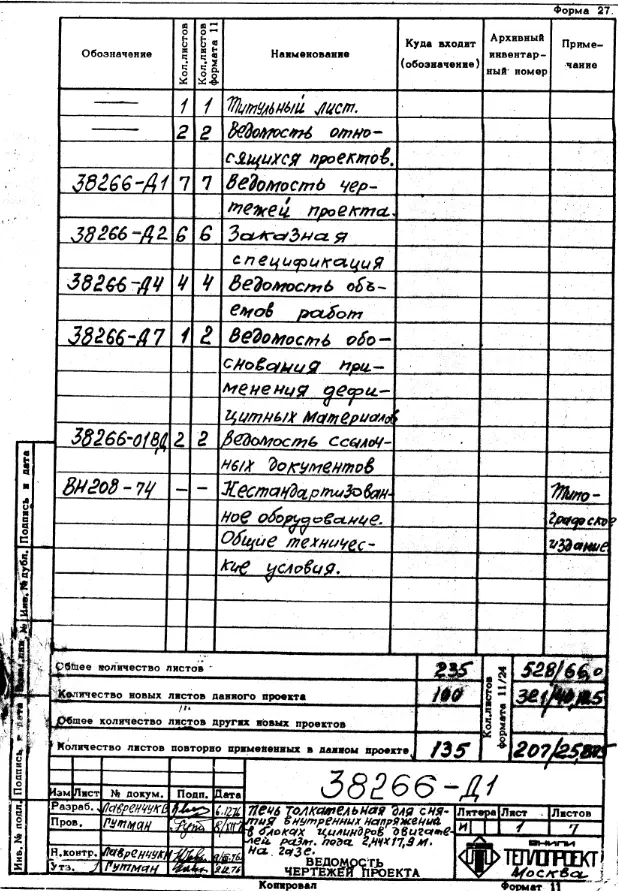 Форма 27.
Обозначение
Кол.листов
Кол.листов формата 11
Наименование
Куда входит
(обозначение)
Архивный
инвентар-
ный номер
Приме-
чание
— 1 1 Титульный лист.
— 2 2 Ведомость отно-
сящихся проектов.
38266-Д1 7 7 Ведомость чер-
тежей проекта.
38266-Д2 6 6 Заказная
спецификация
38266-Д4 4 4 Ведомость объ-
емов работ
38266-Д7 1 2 Ведомость обо-
снования при-
менения дефи-
цитных материалов
38266-01ВД 2 2 Ведомость ссылоч-
ных документов
ВН208-74 — — Нестандартизован- Типо-
ное оборудование. графское
Общие техничес- издание
кие условия.
Общее количество листов 235
528/66,0
Количество новых листов данного проекта 100
Общее количество листов других новых проектов
Количество листов повторно примененных в данном проекте 135
207/25,875
Кол.листов
формата 11/24
Подпись и дата
Инв.№дубл.
Подпись и дата
Инв.№ подл.
38266-Д1
Изм Лист № докум. Подп. Дата
Разраб. Лавренчук
Пров. Гутман
Н.контр. Лавренчук
Утв. Гутман
Печь толкательная для сня-
тия внутренних напряжений
в блоках цилиндров двигате-
лей разм. пода 2,4х17,9 м.
На газе.
ВЕДОМОСТЬ
ЧЕРТЕЖЕЙ ПРОЕКТА
Литера Лист Листов
И 1 7
ВНИПИ
ТЕПЛОПРОЕКТ
Москва
Копировал
Формат 11